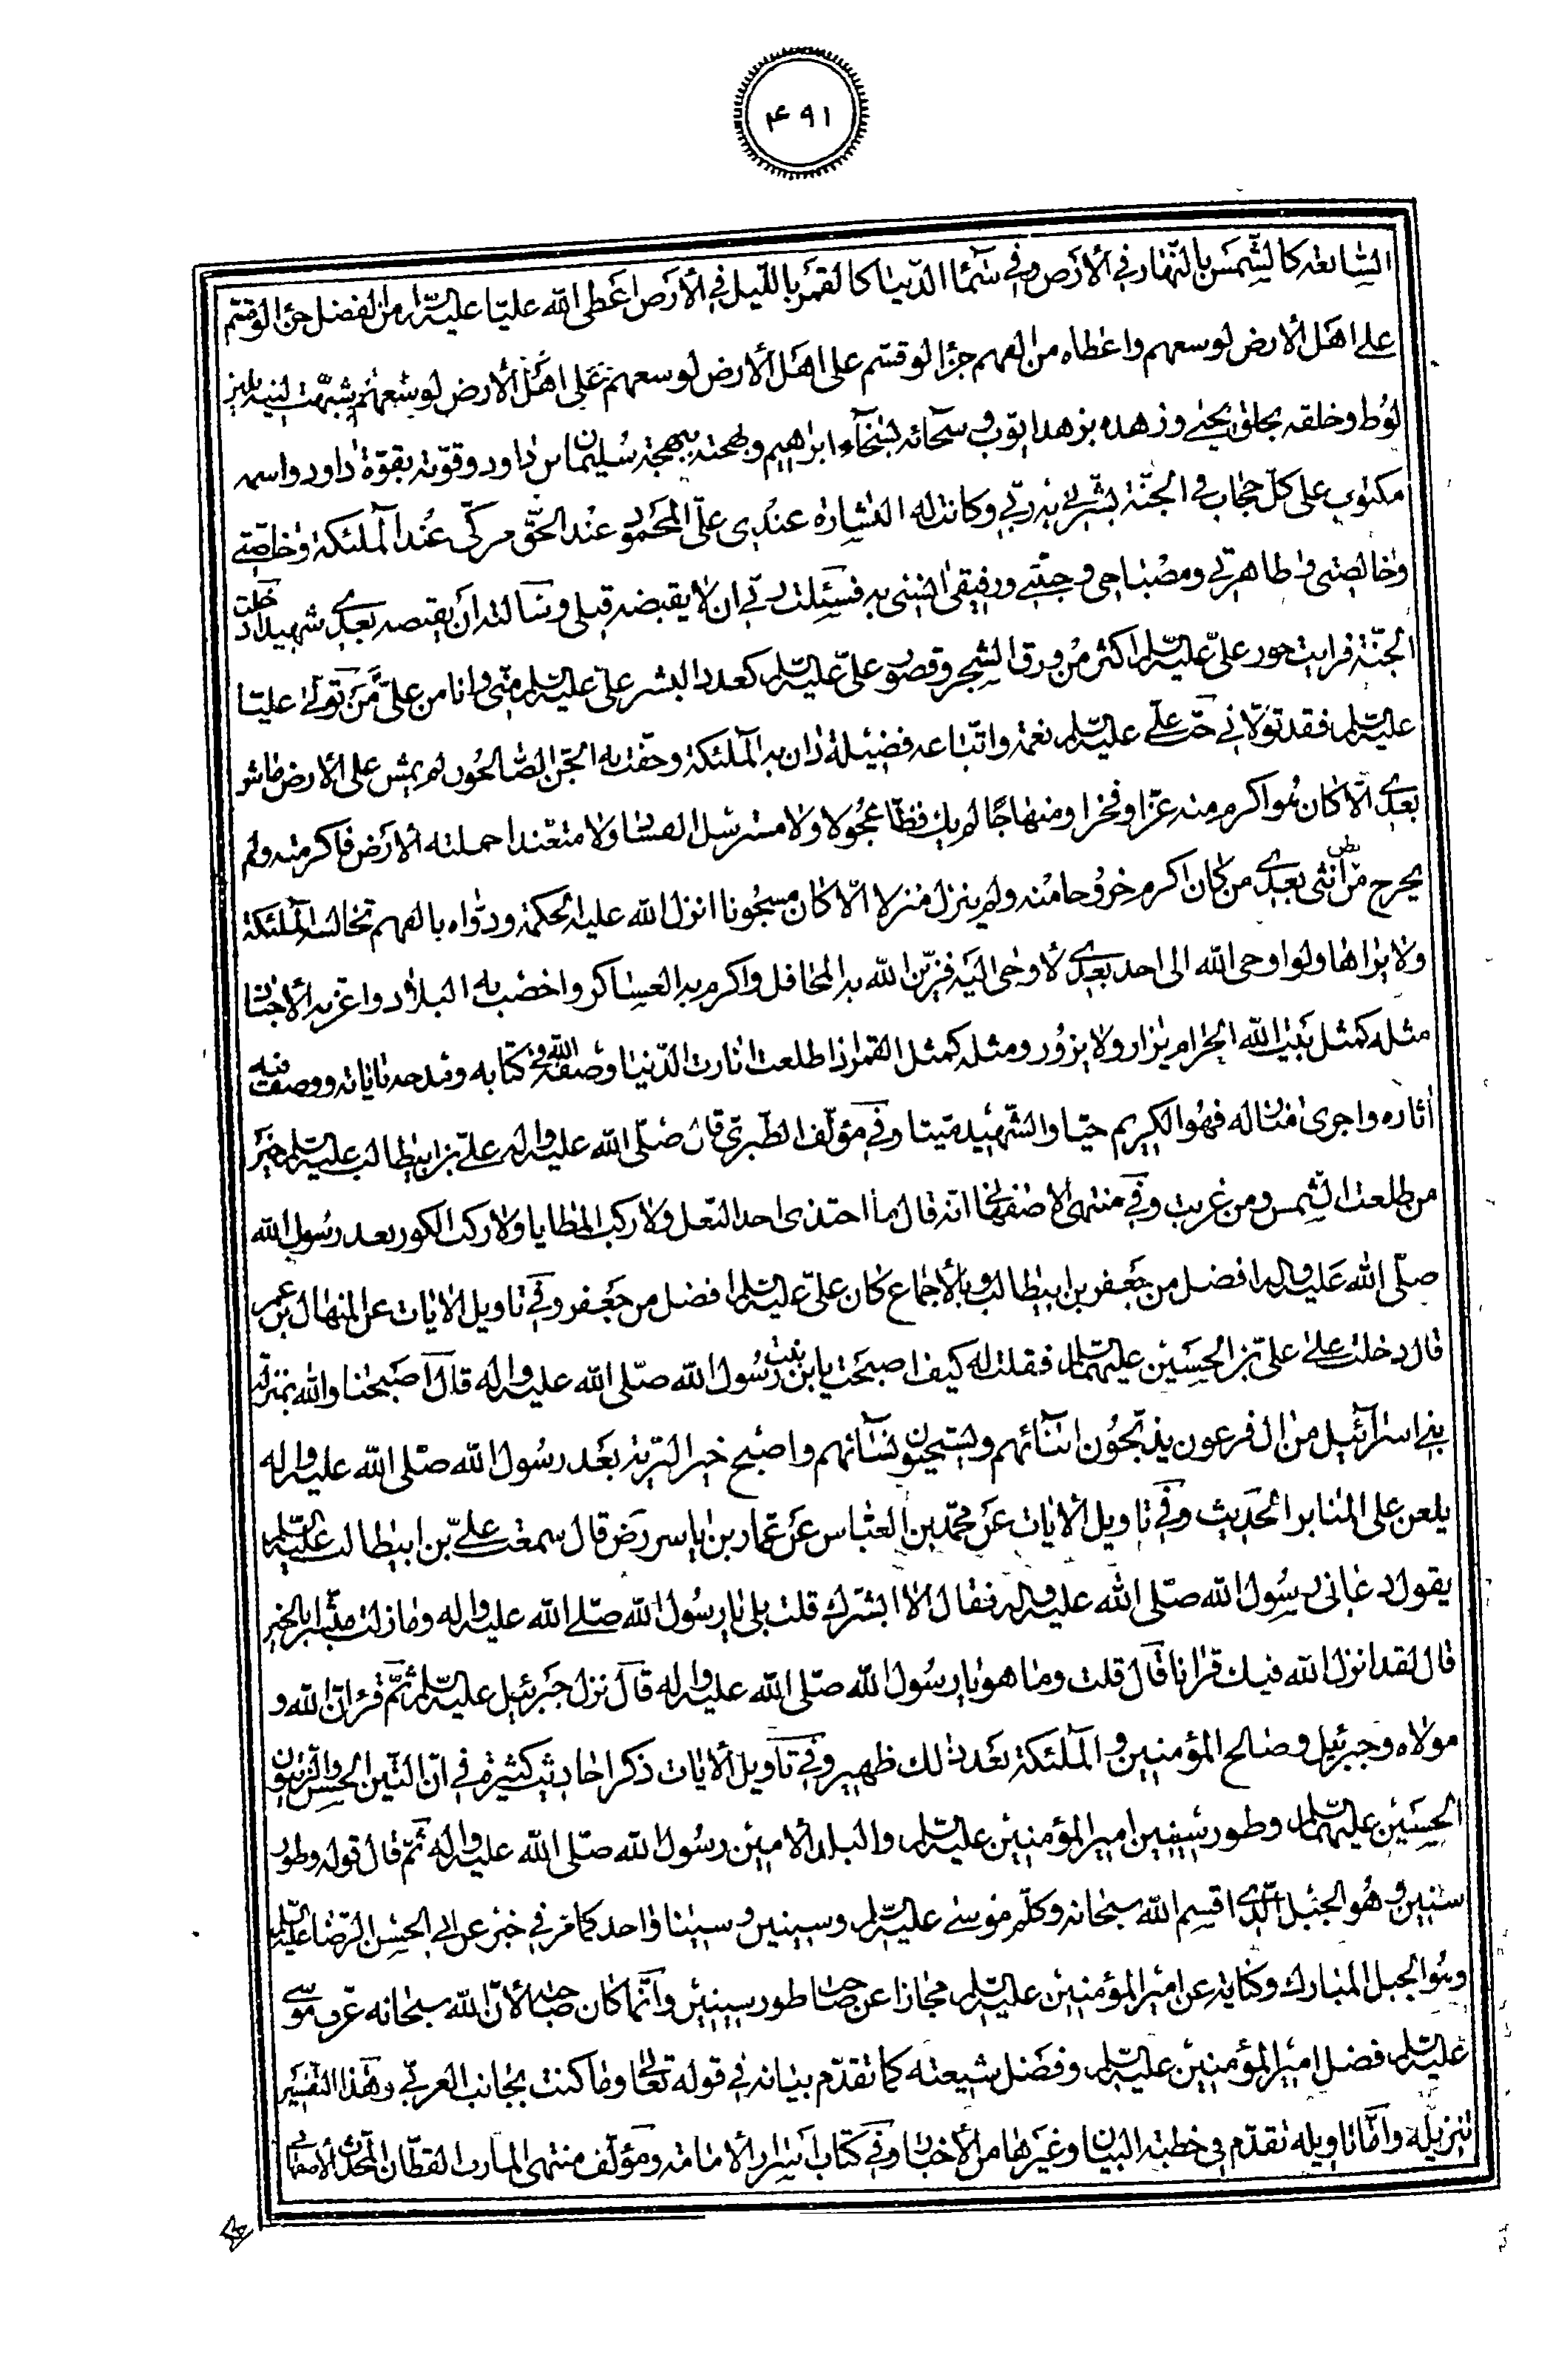 ۴۹۱
السابعة كالشمس بالنهار في الأرض وفي سماء الدنيا كالقمر بالليل في الأرض اعطى الله عليا عليه السلام من الفضل جزءا لو قسم
على اهل الأرض لوسعهم واعطاه من الفهم جزءا لو قسم على اهل الأرض لوسعهم على اهل الأرض لوسعهم شبهت لينه بلين
لوط وخلقه بخلق يحيى وزهده بزهد ايوب وسخائه بسخاء ابراهيم وبهجته ببهجة سليمان بن داود وقوته بقوة داود واسمه
مكتوب على كل حجاب في الجنة بشرني به ربي وكانت له البشارة عندي علي المحمود عند الحق مزكى عند الملئكة وخاصتي
وخالصتي وظاهرتي ومصباحي وجنتي ورفيقي انسني به فسئلت ربي ان لا يقبضه قبلي وسألته ان يقبضه بعدي شهيدا دخلت
الجنة فرايت حور علي عليه السلام اكثر من ورق الشجر وقصور علي عليه السلام كعدد البشر علي عليه السلام مني وانا من علي من تولى عليا
عليه السلام فقد تولاني حب علي عليه السلام نعمة واتباعه فضيلة دان به الملئكة وحفت به الجن الصالحون لم يمش على الارض ماش
بعدي الا كان هو اكرم منه عزا وفخرا ومنهاجا لم يك فظا عجولا ولا مسترسلا لفساد ولا متعندا حملته الأرض فاكرمته ولم
يخرج من انثى بعدي من كان اكرم خروجا منه ولم ينزل منزلا الا كان ميمونا انزل الله عليه الحكمة ورداه بالفهم تجالسه الملئكة
ولا يراها ولو اوحى الله الى احد بعدي لأوحى اليه فزين الله به المحافل واكرم به العساكر واخصب به البلاد واعز به الأجناد
مثله كمثل بيت الله الحرام يزار ولا يزور ومثله كمثل القمر اذا طلعت انارت الدنيا وصفه الله في كتابه ومدحه باياته ووصف فيه
اثاره واجرى منازله فهو الكريم حيا والشهيد ميتا وفي مؤلف الطبري قال صلى الله عليه واله علي بن ابيطالب عليه السلام خير
من طلعت الشمس ومن غربت وفي منتهى الاصفهاني انه قال ما احتذى احد النعل ولا ركب المطايا ولا ركب الكور بعد رسول الله
صلى الله عليه واله افضل من جعفر بن ابيطالب وبالأجماع كان علي عليه السلام افضل من جعفر وفي تاويل الايات عن المنهال بن عمر
قال دخلت على علي بن الحسين عليهما السلام فقلت له كيف اصبحت يابن بنت رسول الله صلى الله عليه واله قال اصبحنا والله بمنزلة
بني اسرائيل من ال فرعون يذبحون ابنائهم ويستحيون نسائهم واصبح خير البرية بعد رسول الله صلى الله عليه واله
يلعن على المنابر الحديث وفي تاويل الأيات عن محمد بن العباس عن عمار بن ياسر رض قال سمعت علي بن ابيطالب عليه السلام
يقول دعاني رسول الله صلى الله عليه واله فقال الا ابشرك قلت بلى يا رسول الله صلى الله عليه واله وما زلت مبشرا بالخير
قال لقد انزل الله فيك قرانا قال قلت وما هو يا رسول الله صلى الله عليه واله قال نزل جبرئيل عليه السلام ثم قرأ ان الله و
مولاه وجبرئيل وصالح المؤمنين والملئكة بعد ذلك ظهير وفي تاويل الأيات ذكر احاديث كثيرة في ان التين الحسن والزيتون
الحسين عليهما السلام وطور سينين امير المؤمنين عليه السلام والبلد الأمين رسول الله صلى الله عليه واله ثم قال قوله وطور
سنين وهو الجبل الذي اقسم الله سبحانه وكلم موسى عليه السلام وسينين وسينا واحد كما مر في خبر عن ابي الحسن الرضا عليه السلام
وهو الجبل المبارك وكناية عن امير المؤمنين عليه السلام مجازا عن صاحب طور سينين وانما كان صاحبه لأن الله سبحانه عرف موسى
عليه السلام فضل امير المؤمنين عليه السلام وفضل شيعته كما تقدم بيانه في قوله تعالى وما كنت بجانب الغربي وهذا التفسير
تنزيله واما تاويله تقدم في خطبة البيان وغيرها من الأخبار وفي كتاب اسرار الامامة ومؤلف منتهى المارب القطان المحدث الأصفهاني